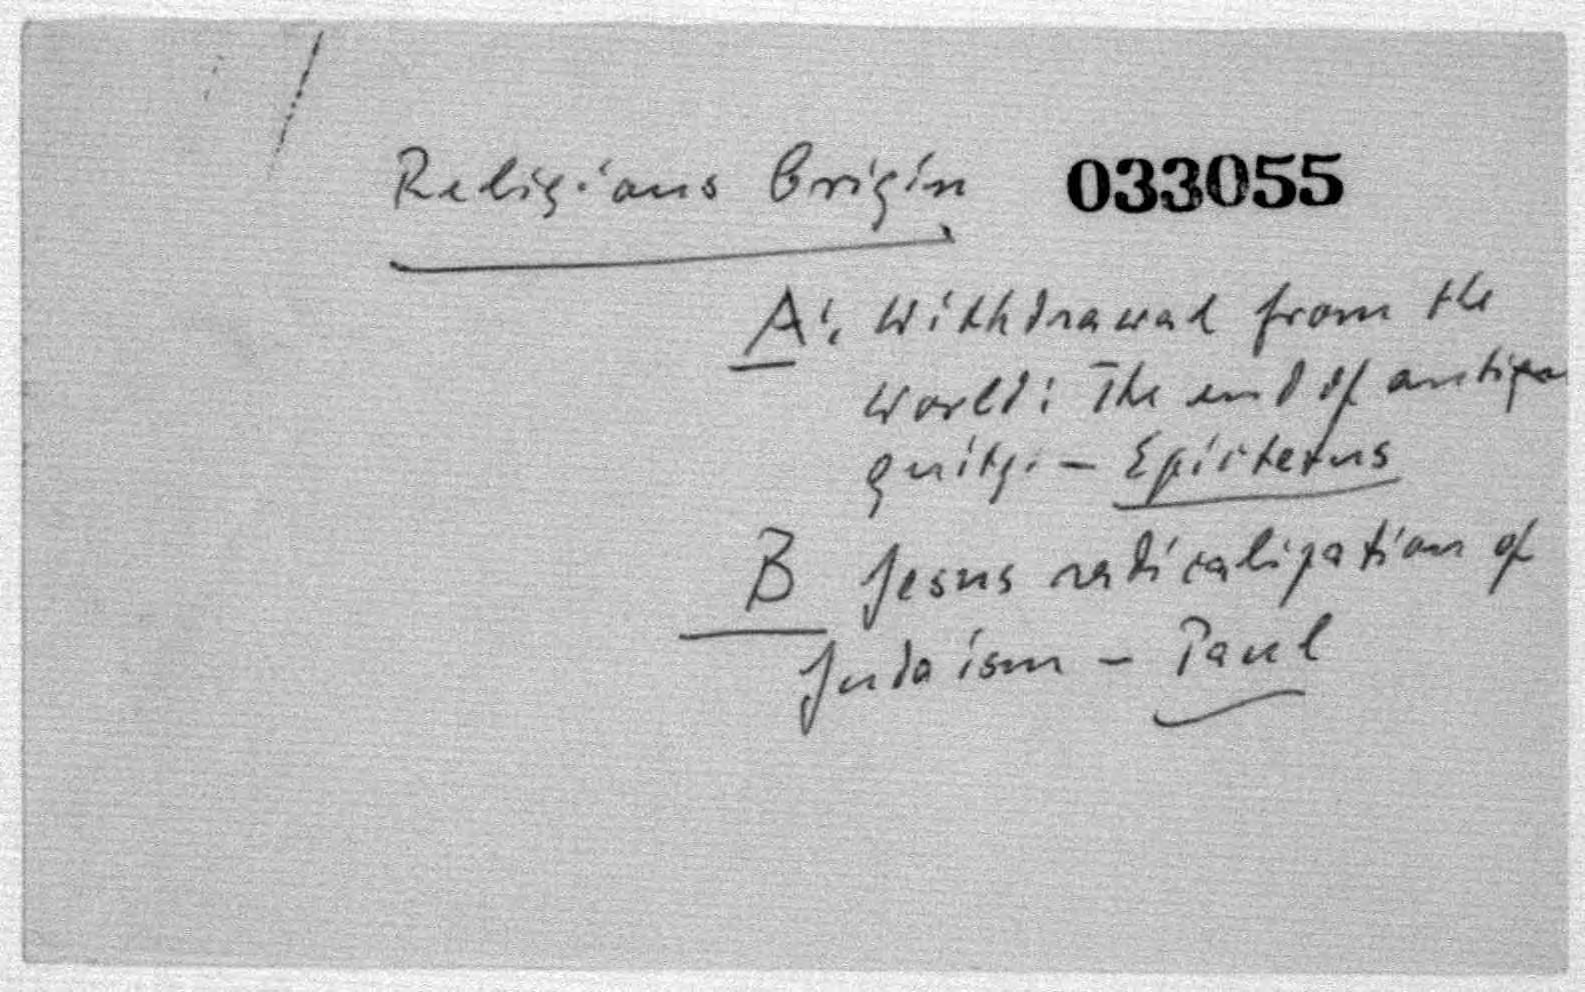 Religious Origin 033055
A: Withdrawal from the
World: The end of anti
quity. – Epictetus
B Jesus radicalization of
Judaism – Paul